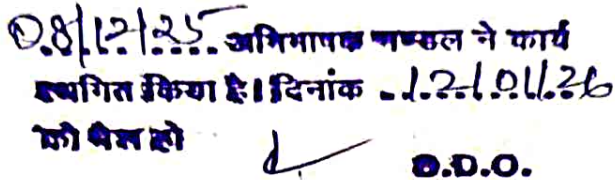 08/12/25 अभिभाषक मण्डल ने कार्य
स्थगित किया है। दिनांक 12/01/26
को पेश हो
O.D.O.